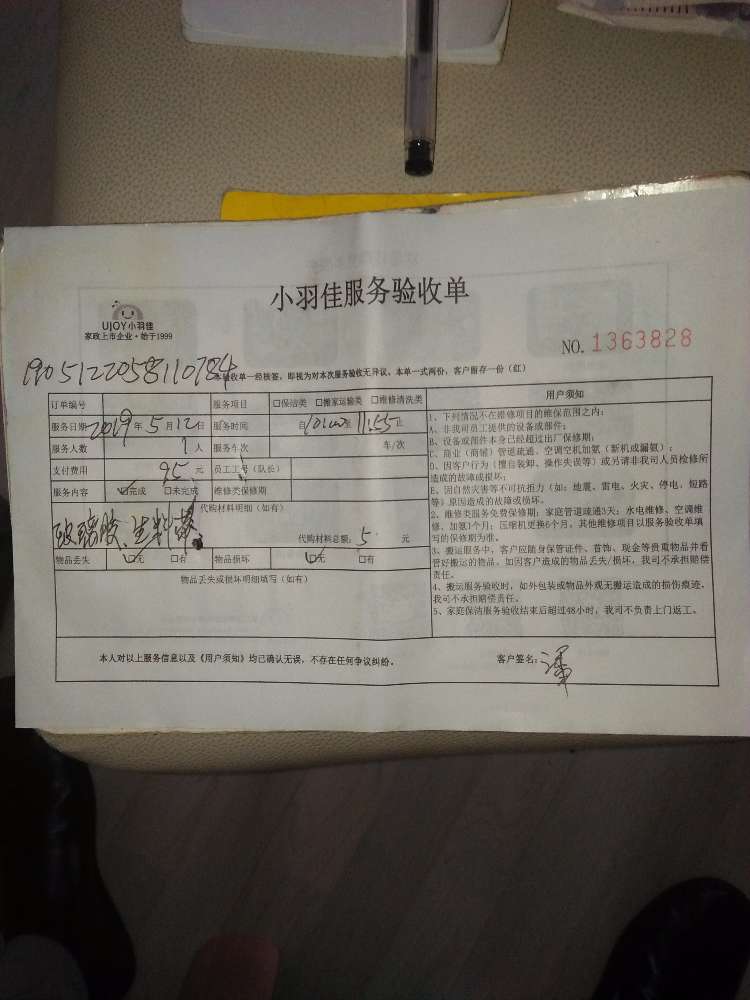 小羽佳服务验收单
UJOY小羽佳
家政上市企业·始于1999
NO. 1363828
1905122058110784
本验收单一经核签,即视为对本次服务验收无异议。本单一式两份,客户留存一份(红)
订单编号 服务项目 □保洁类 □搬家运输类 □维修清洗类
服务日期 2019年5月12日 服务时间 自10:00至11:55止
服务人数 1人 服务车次 车/次
支付费用 95元 员工工号(队长)
服务内容 ☑完成 □未完成 维修类保修期
代购材料明细(如有)
玻璃胶、生料带
代购材料总额:5元
物品丢失 ☑无 □有 物品损坏 ☑无 □有
物品丢失或损坏明细填写(如有)
用户须知
1、下列情况不在维修项目的维保范围之内:
A、非我司员工提供的设备或部件;
B、设备或部件本身已经超过出厂保修期;
C、商业(商铺)管道疏通、空调空机加氨(新机或漏氨);
D、因客户行为(擅自装卸、操作失误等)或另请非我司人员检修所
造成的故障或损坏;
E、因自然灾害等不可抗拒力(如:地震、雷电、火灾、停电、短路
等)原因造成的故障或损坏。
2、维修类服务免费保修期:家庭管道疏通3天;水电维修、空调维
修、加氨1个月;压缩机更换6个月。其他维修项目以服务验收单填
写的保修期为准。
3、搬运服务中,客户应随身保管证件、首饰、现金等贵重物品并看
管好搬运的物品。如因客户造成的物品丢失/损坏,我司不承担赔偿
责任。
4、搬运服务验收时,如外包装或物品外观无搬运造成的损伤痕迹,
我司不承担赔偿责任。
5、家庭保洁服务验收结束后超过48小时,我司不负责上门返工。
本人对以上服务信息以及《用户须知》均已确认无误,不存在任何争议纠纷。 客户签名: